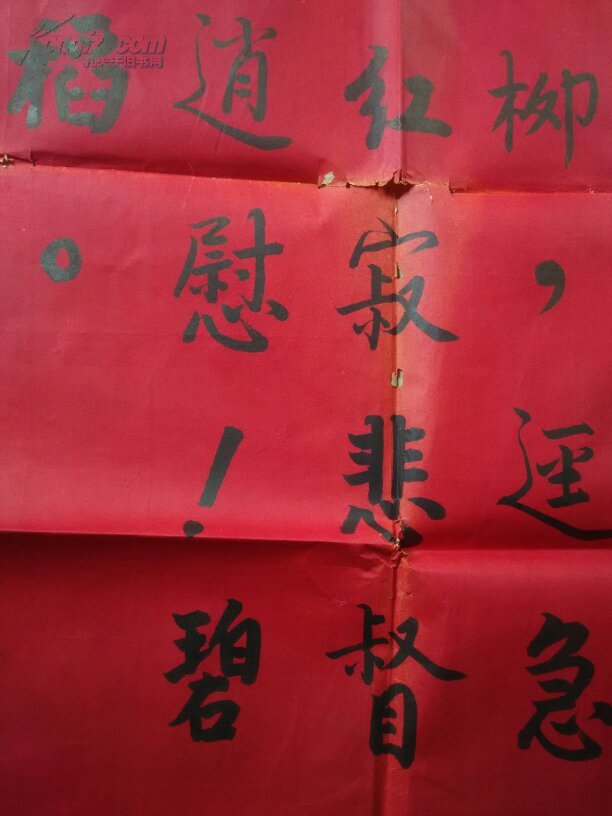 柳，逕急
红寂悲督
逍慰！碧
稻。
kongfz.com
孔夫子旧书网